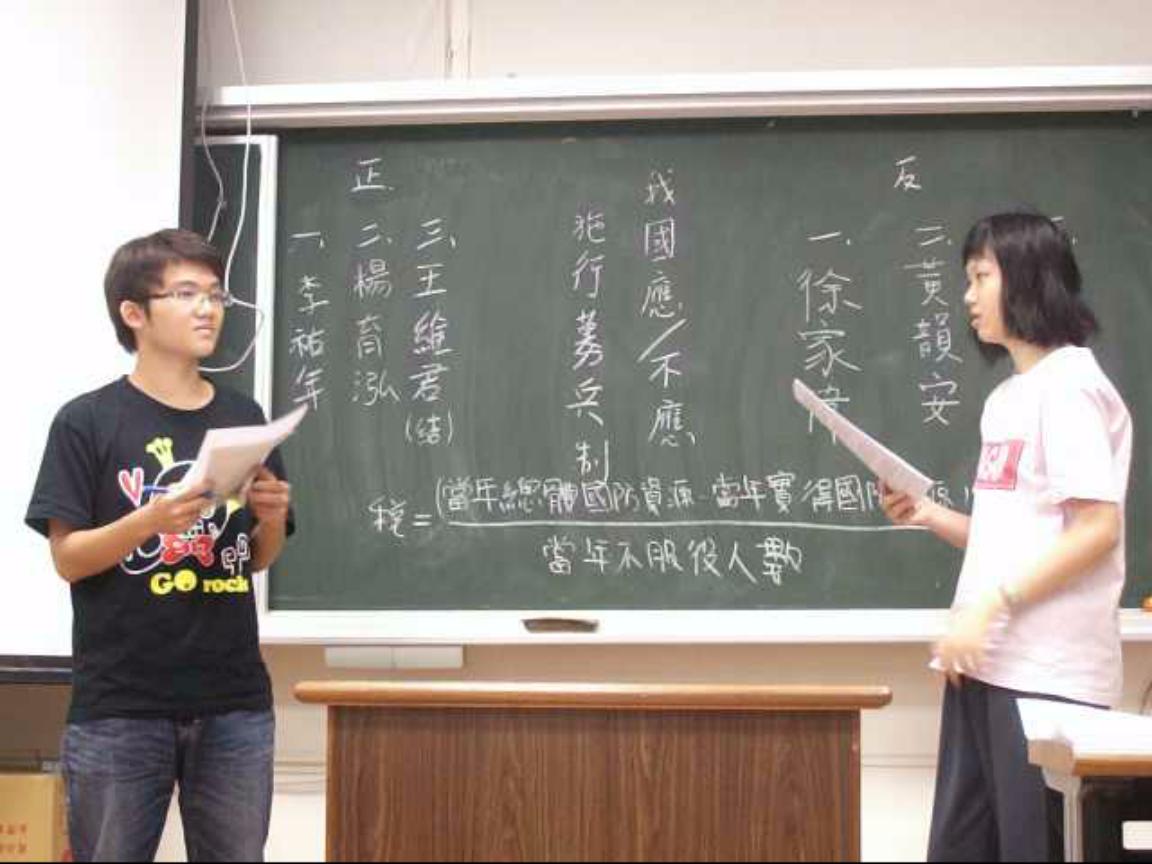 正
一、李祐年
二、楊育泓
三、王維君(結)
我國應/不應
施行募兵制
反
一、徐家
二、黃韻安
稅=(當年總體國防資源-當年實得國防
當年不服役人數
GO rock